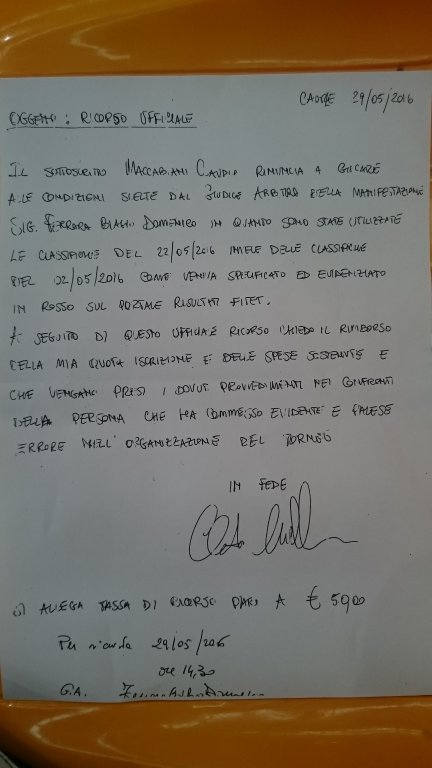 CAORLE 29/05/2016
OGGETTO: RICORSO UFFICIALE
IL SOTTOSCRITTO MACCABIANI CLAUDIO RINUNCIA A GIOCARE
ALLE CONDIZIONI SCELTE DAL GIUDICE ARBITRO DELLA MANIFESTAZIONE
SIG. FERRARA BIAGIO DOMENICO IN QUANTO SONO STATE UTILIZZATE
LE CLASSIFICHE DEL 22/05/2016 INVECE DELLE CLASSIFICHE
DEL 02/05/2016 COME VENIVA SPECIFICATO ED EVIDENZIATO
IN ROSSO SUL PORTALE RISULTATI FITET.
A SEGUITO DI QUESTO UFFICIALE RICORSO CHIEDO IL RIMBORSO
DELLA MIA QUOTA ISCRIZIONE E DELLE SPESE SOSTENUTE E
CHE VENGANO PRESI I DOVUTI PROVVEDIMENTI NEI CONFRONTI
DELLA PERSONA CHE HA COMMESSO EVIDENTE E PALESE
ERRORE NELL'ORGANIZZAZIONE DEL TORNEO
IN FEDE
SI ALLEGA TASSA DI RICORSO PARI A € 50,00
Per ricevuta 29/05/2016
ore 14,30
G.A.